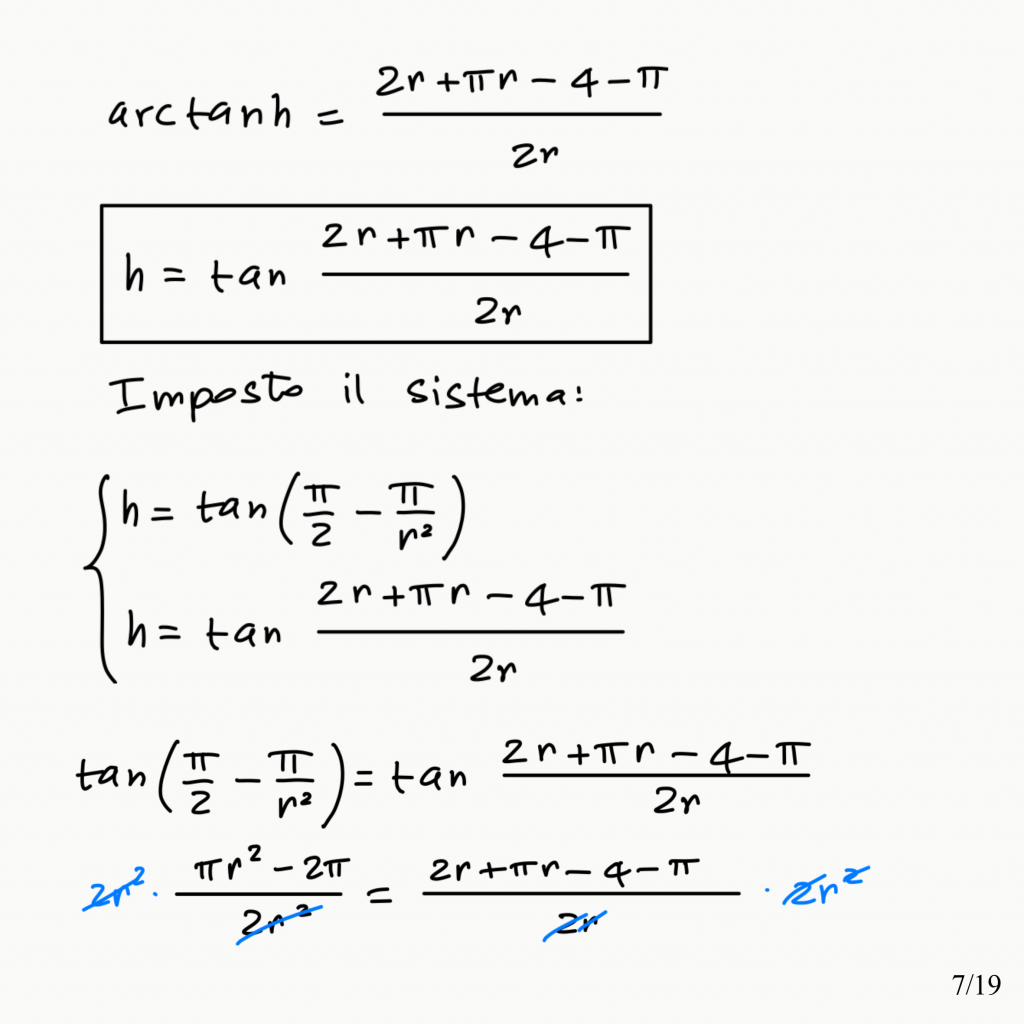 arctanh = (2r + πr − 4 − π) / 2r
h = tan (2r + πr − 4 − π) / 2r
Imposto il sistema:
{ h = tan(π/2 − π/r²)
h = tan (2r + πr − 4 − π) / 2r
tan(π/2 − π/r²) = tan (2r + πr − 4 − π) / 2r
2r² · (πr² − 2π) / 2r² = (2r + πr − 4 − π) / 2r · 2r²
7/19